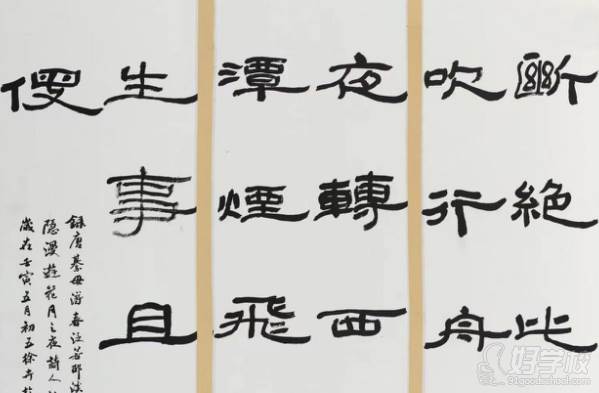 斷絕此
吹行舟
夜轉西
潭煙飛
生事且
傁
錄唐綦毋潛春泛若耶溪
隱漫遊花月之夜詩人
歲在壬寅五月初五徐
好学校
91goodschool.com